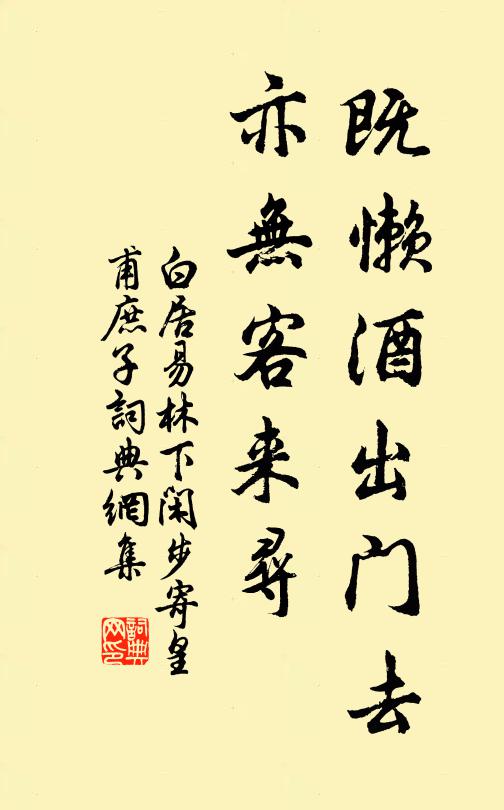 既懒酒出门去
亦無客来尋
白居易林下闲步寄皇
甫庶子詞典網集
詞典
网印